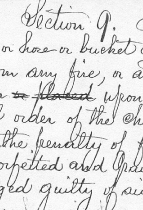 Section 9.
or hose or bucket
any fire, or a
in placed upon
order of the Ch
the penalty of
orfeited and
ged guilty of